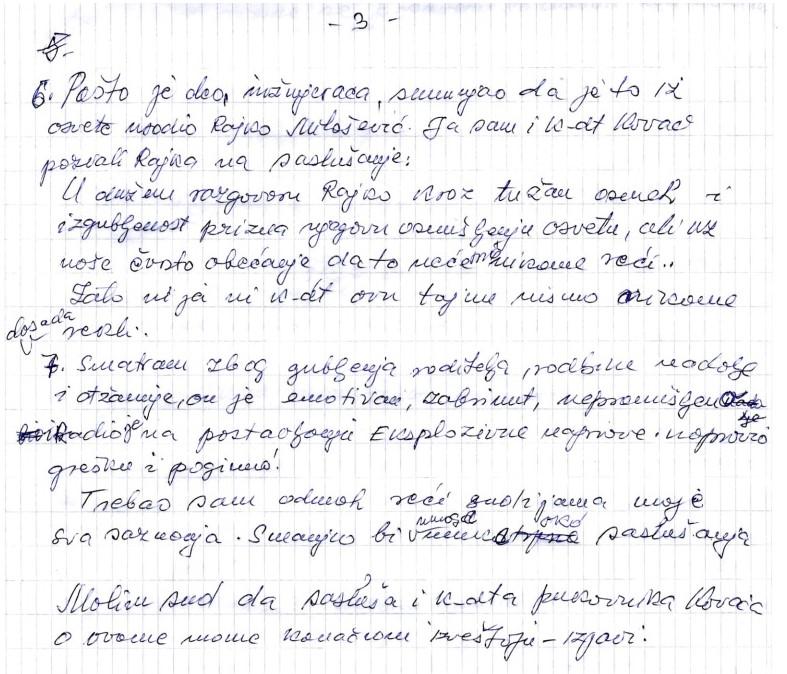 - 3 -
6. Pošto je deo, inžinjeraca, sumnjao da je to iz
osvete uradio Rajko Milošević. Ja sam i k-dt Kovač
pozvali Rajka na saslušanje:
U dužem razgovoru Rajko kroz tužan osmeh i
izgubljenost prizna njegovu osmišljenju osvetu, ali uz
naše čvrsto obećanje da to neće mo nikome reći..
Zato ni ja ni k-dt ovu tajnu nismo nikome
dosada rekli..
7. Smatram zbog gubljenja roditelja, rodbine nadalje
i otžanije, on je emotivan, zabrinut, nepromišljen
Radio je na postavljanju Eksplozivne naprave. napravio
grešku i poginuo!
Trebao sam odmah reći sudijama moje
sva saznanja. Smanjio bi mnoga oko saslušanja
Molim sud da sasluša i k-dta pukovnika Kovača
o ovome mome konačnom izveštaju - izjavi.